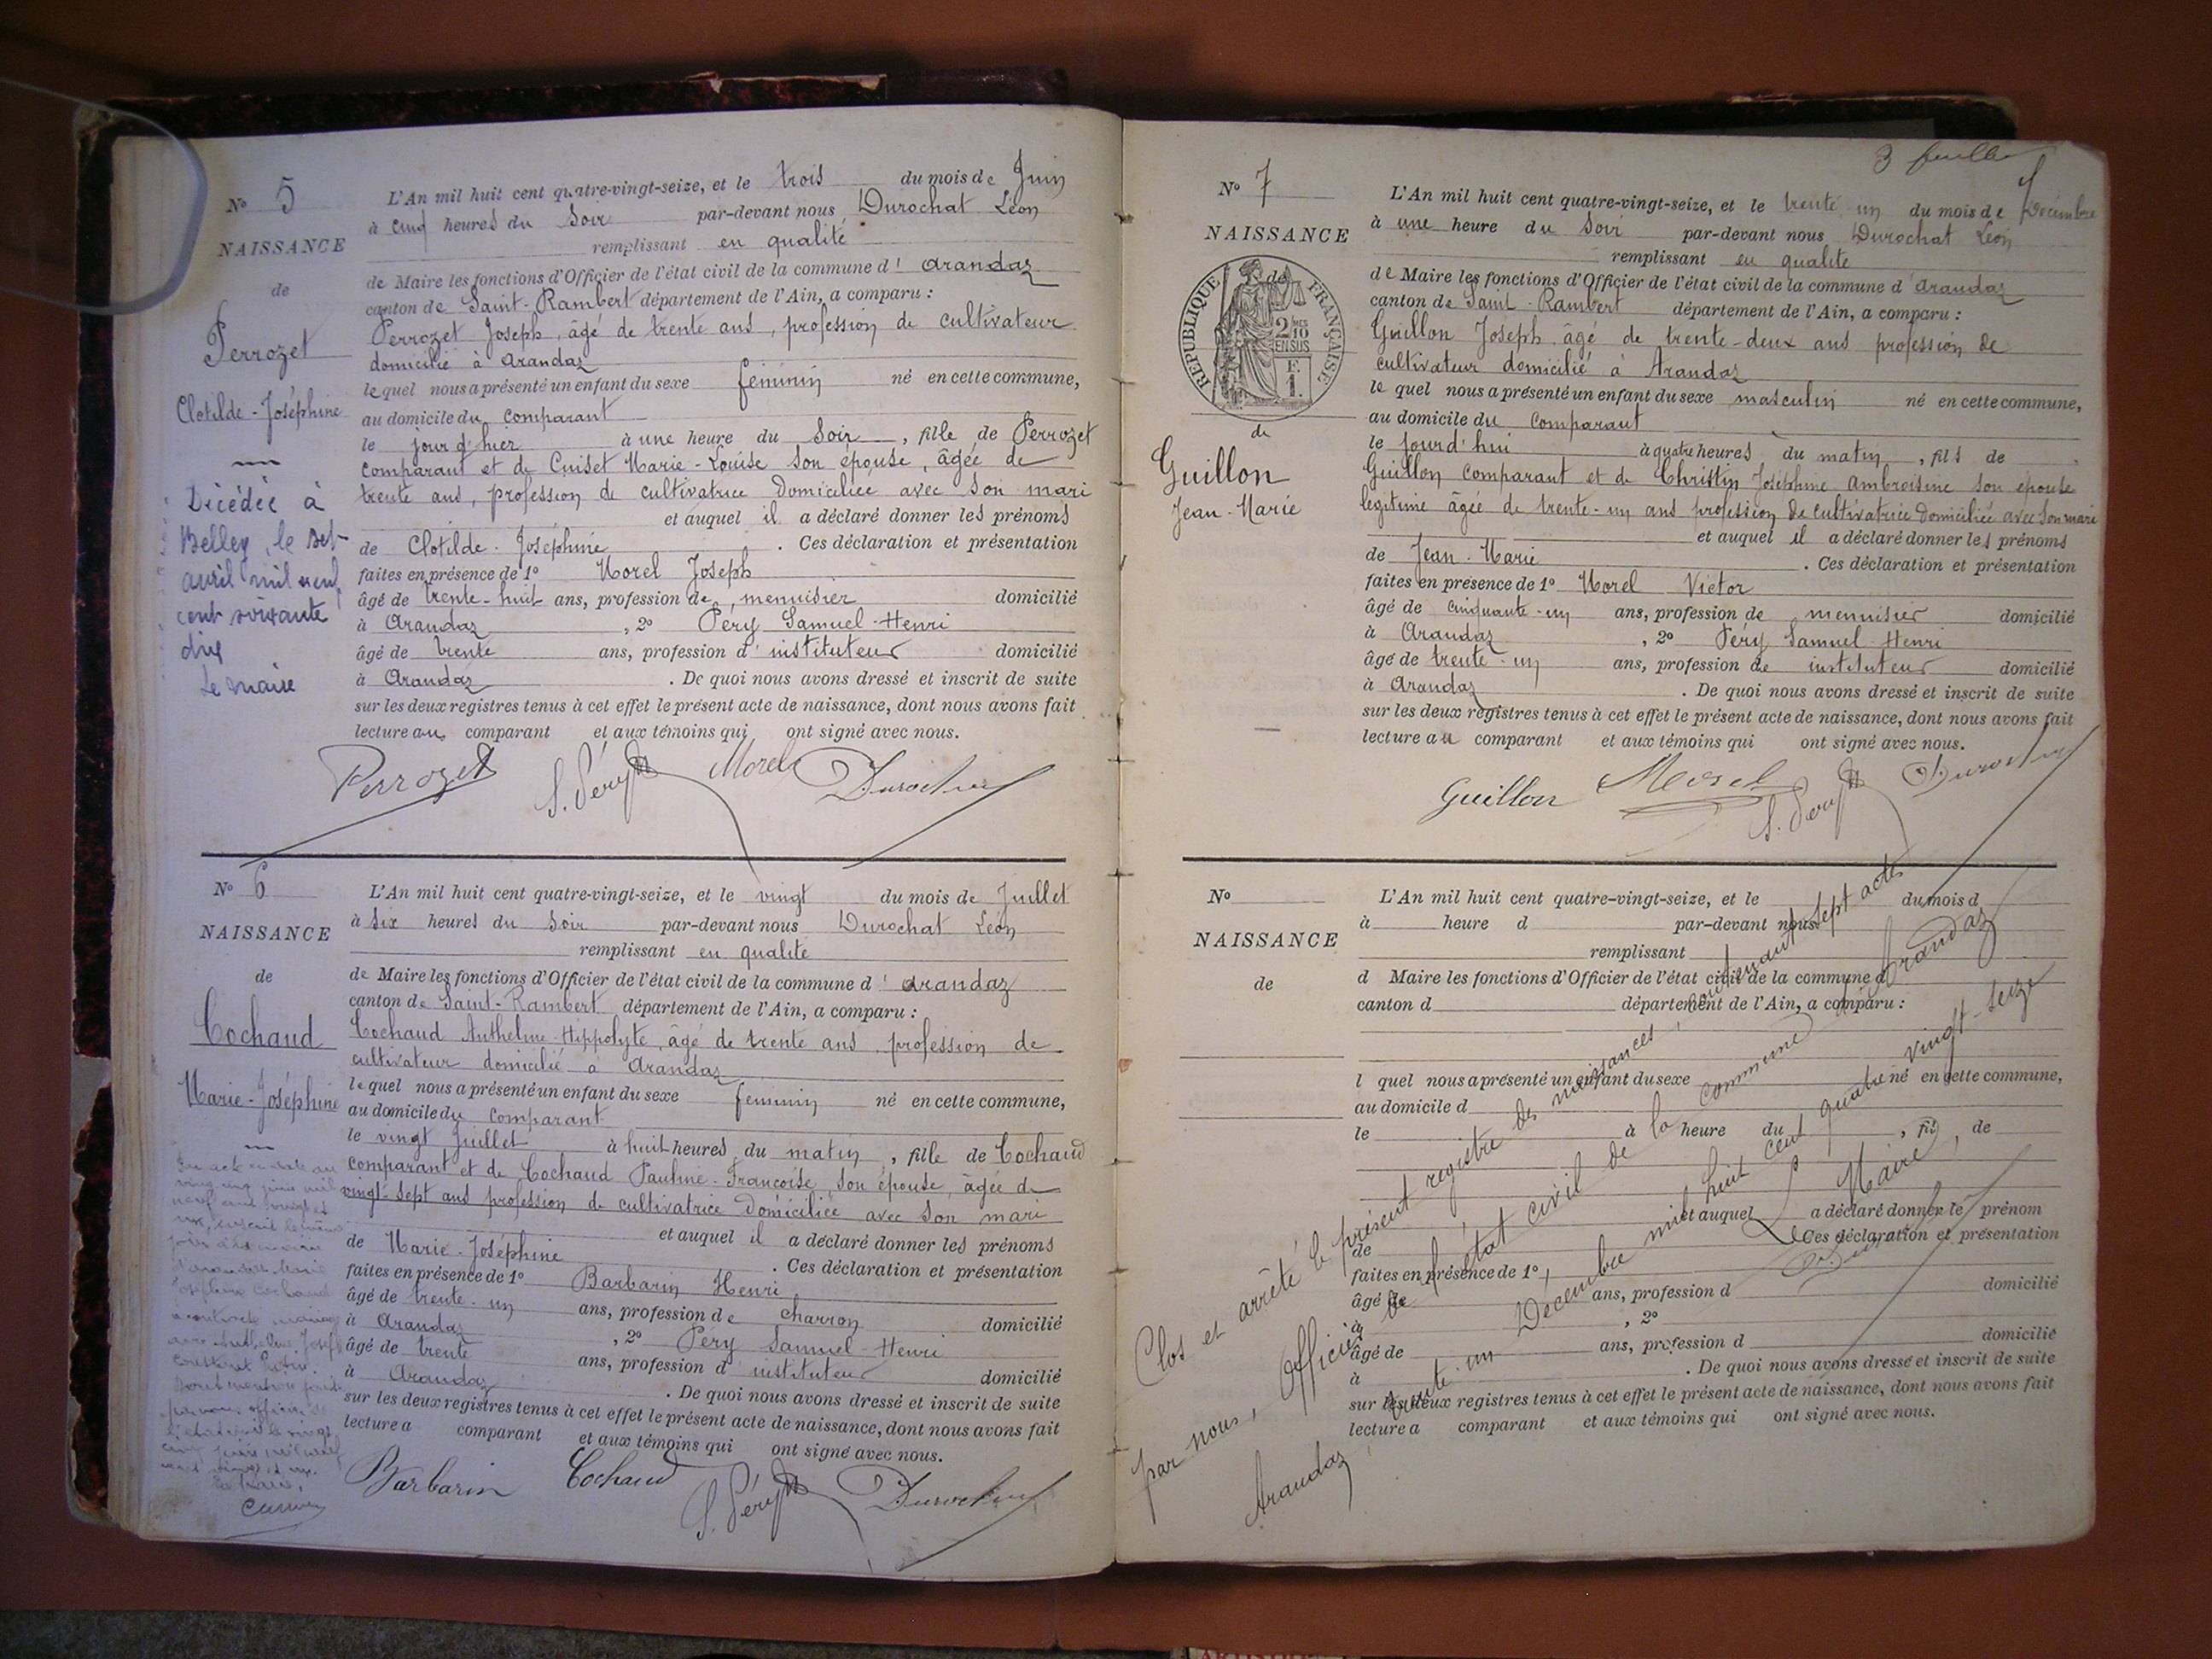 N° 5
NAISSANCE
de
Perrozet
Clotilde-Joséphine
Décédée à
Belley, le sept
avril mil neuf
cent soixante
dix
Le maire
L'An mil huit cent quatre-vingt-seize, et le trois du mois de Juin
à cinq heures du Soir par-devant nous Durochat Léon
remplissant en qualité
de Maire les fonctions d'Officier de l'état civil de la commune d'Arandaz
canton de Saint-Rambert département de l'Ain, a comparu :
Perrozet Joseph, âgé de trente ans, profession de cultivateur
domicilié à Arandaz
lequel nous a présenté un enfant du sexe féminin né en cette commune,
au domicile du comparant
le jour d'hier à une heure du Soir, fille de Perrozet
comparant et de Cuiset Marie-Louise son épouse, âgée de
trente ans, profession de cultivatrice domiciliée avec son mari
et auquel il a déclaré donner les prénoms
de Clotilde-Joséphine. Ces déclaration et présentation
faites en présence de 1° Morel Joseph
âgé de trente-huit ans, profession de menuisier domicilié
à Arandaz, 2° Péry Samuel-Henri
âgé de trente ans, profession d'instituteur domicilié
à Arandaz. De quoi nous avons dressé et inscrit de suite
sur les deux registres tenus à cet effet le présent acte de naissance, dont nous avons fait
lecture au comparant et aux témoins qui ont signé avec nous.
Perrozet S. Péry Morel Durochat
N° 6
NAISSANCE
de
Cochaud
Marie-Joséphine
L'An mil huit cent quatre-vingt-seize, et le vingt du mois de Juillet
à six heures du soir par-devant nous Durochat Léon
remplissant en qualité
de Maire les fonctions d'Officier de l'état civil de la commune d'Arandaz
canton de Saint-Rambert département de l'Ain, a comparu :
Cochaud Anthelme-Hippolyte, âgé de trente ans, profession de
cultivateur domicilié à Arandaz
lequel nous a présenté un enfant du sexe féminin né en cette commune,
au domicile du comparant
le vingt Juillet à huit heures du matin, fille de Cochaud
comparant et de Cochaud Pauline-Françoise, son épouse, âgée de
vingt-sept ans profession de cultivatrice domiciliée avec son mari
et auquel il a déclaré donner les prénoms
de Marie-Joséphine. Ces déclaration et présentation
faites en présence de 1° Barbarin Henri
âgé de trente-un ans, profession de charron domicilié
à Arandaz, 2° Péry Samuel-Henri
âgé de trente ans, profession d'instituteur domicilié
à Arandaz. De quoi nous avons dressé et inscrit de suite
sur les deux registres tenus à cet effet le présent acte de naissance, dont nous avons fait
lecture a comparant et aux témoins qui ont signé avec nous.
Barbarin Cochaud S. Péry Durochat
3
N° 7
NAISSANCE
RÉPUBLIQUE FRANÇAISE
2/10 EN SUS
F. 1.
de
Guillon
Jean-Marie
L'An mil huit cent quatre-vingt-seize, et le trente-un du mois de Décembre
à une heure du Soir par-devant nous Durochat Léon
remplissant en qualité
de Maire les fonctions d'Officier de l'état civil de la commune d'Arandaz
canton de Saint-Rambert département de l'Ain, a comparu :
Guillon Joseph, âgé de trente-deux ans profession de
cultivateur domicilié à Arandaz
lequel nous a présenté un enfant du sexe masculin né en cette commune,
au domicile du comparant
le jourd'hui à quatre heures du matin, fils de
Guillon comparant et de Christin Joséphine Ambroisine son épouse
légitime âgée de trente-un ans profession de cultivatrice domiciliée avec son mari
et auquel il a déclaré donner les prénoms
de Jean-Marie. Ces déclaration et présentation
faites en présence de 1° Morel Victor
âgé de cinquante-un ans, profession de menuisier domicilié
à Arandaz, 2° Péry Samuel-Henri
âgé de trente-un ans, profession de instituteur domicilié
à Arandaz. De quoi nous avons dressé et inscrit de suite
sur les deux registres tenus à cet effet le présent acte de naissance, dont nous avons fait
lecture au comparant et aux témoins qui ont signé avec nous.
Guillon Morel S. Péry Durochat
N°
NAISSANCE
de
L'An mil huit cent quatre-vingt-seize, et le du mois d
à heure d par-devant nous
remplissant
d Maire les fonctions d'Officier de l'état civil de la commune d
canton d département de l'Ain, a comparu :
l quel nous a présenté un enfant du sexe né en cette commune,
au domicile d
le à heure du , fil de
et auquel a déclaré donner le prénom
de Ces déclaration et présentation
faites en présence de 1°
âgé de ans, profession d domicilié
à , 2°
âgé de ans, profession d domicilié
à . De quoi nous avons dressé et inscrit de suite
sur les deux registres tenus à cet effet le présent acte de naissance, dont nous avons fait
lecture a comparant et aux témoins qui ont signé avec nous.
Clos et arrêté le présent registre de naissances contenant sept actes
par nous, Officier de l'état civil de la commune d'Arandaz
Arandaz, trente-un Décembre mil huit cent quatre vingt-seize
Le Maire,
Durochat